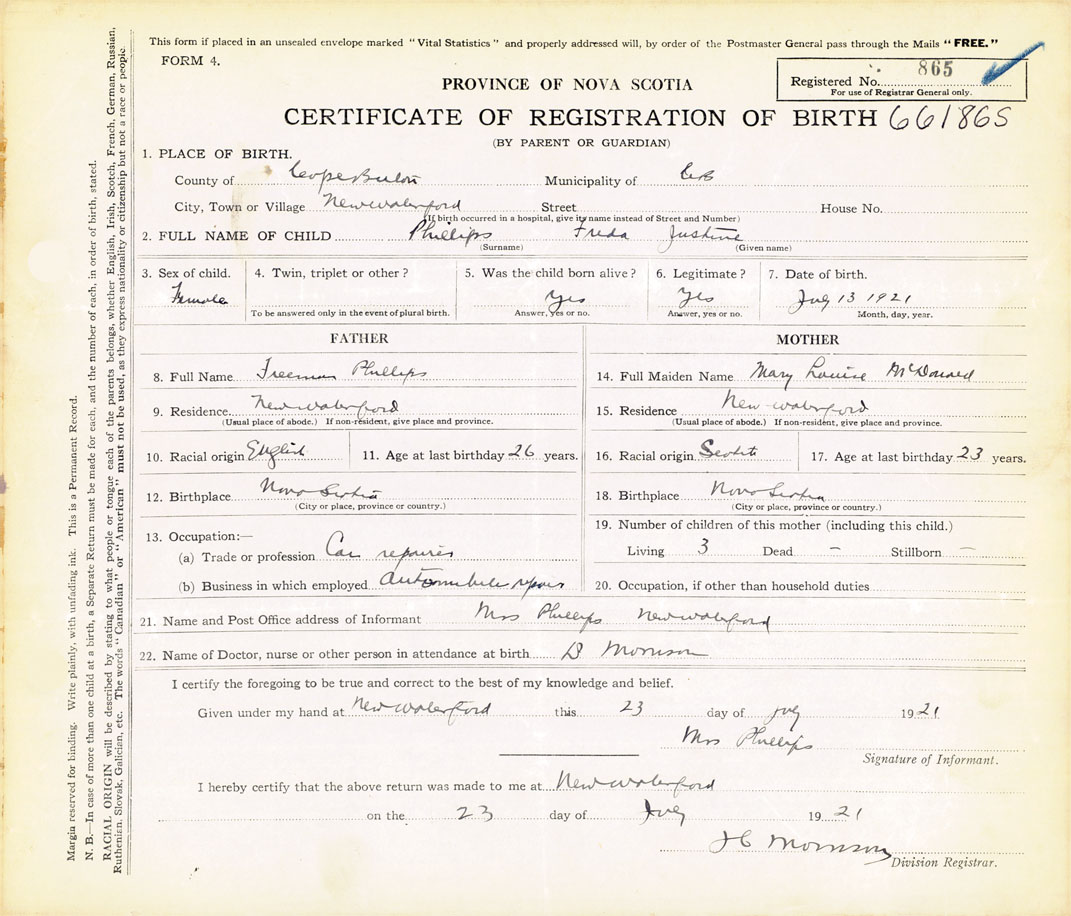 This form if placed in an unsealed envelope marked "Vital Statistics" and properly addressed will, by order of the Postmaster General pass through the Mails "FREE."
FORM 4.
865
Registered No.
For use of Registrar General only.
PROVINCE OF NOVA SCOTIA
CERTIFICATE OF REGISTRATION OF BIRTH 661865
(BY PARENT OR GUARDIAN)
1. PLACE OF BIRTH.
County of Cape Breton Municipality of CB
City, Town or Village New waterford Street House No.
(If birth occurred in a hospital, give its name instead of Street and Number)
2. FULL NAME OF CHILD Phillips Freda Justine
(Surname) (Given name)
3. Sex of child. 4. Twin, triplet or other? 5. Was the child born alive? 6. Legitimate? 7. Date of birth.
Female Yes Yes July 13 1921
To be answered only in the event of plural birth. Answer, yes or no. Answer, yes or no. Month, day, year.
FATHER
8. Full Name Freeman Phillips
9. Residence New waterford
(Usual place of abode.) If non-resident, give place and province.
10. Racial origin English 11. Age at last birthday 26 years.
12. Birthplace Nova Scotia
(City or place, province or country.)
13. Occupation:—
(a) Trade or profession Car repaires
(b) Business in which employed automobile repair
MOTHER
14. Full Maiden Name Mary Louise McDonald
15. Residence New waterford
(Usual place of abode.) If non-resident, give place and province.
16. Racial origin Scotch 17. Age at last birthday 23 years.
18. Birthplace Nova Scotia
(City or place, province or country.)
19. Number of children of this mother (including this child.)
Living 3 Dead – Stillborn –
20. Occupation, if other than household duties
21. Name and Post Office address of Informant Mrs Phillips New waterford
22. Name of Doctor, nurse or other person in attendance at birth Dr Morrison
I certify the foregoing to be true and correct to the best of my knowledge and belief.
Given under my hand at New waterford this 23 day of July 1921
Mrs Phillips
Signature of Informant.
I hereby certify that the above return was made to me at New waterford
on the 23 day of July 1921
J C Morrison
Division Registrar.
Margin reserved for binding. Write plainly, with unfading ink. This is a Permanent Record.
N. B.—In case of more than one child at a birth, a Separate Return must be made for each, and the number of each, in order of birth, stated.
RACIAL ORIGIN will be described by stating to what people or tongue each of the parents belongs, whether English, Irish, Scotch, French, German, Russian,
Ruthenian, Slovak, Galician, etc. The words "Canadian" or "American" must not be used, as they express nationality or citizenship but not a race or people.